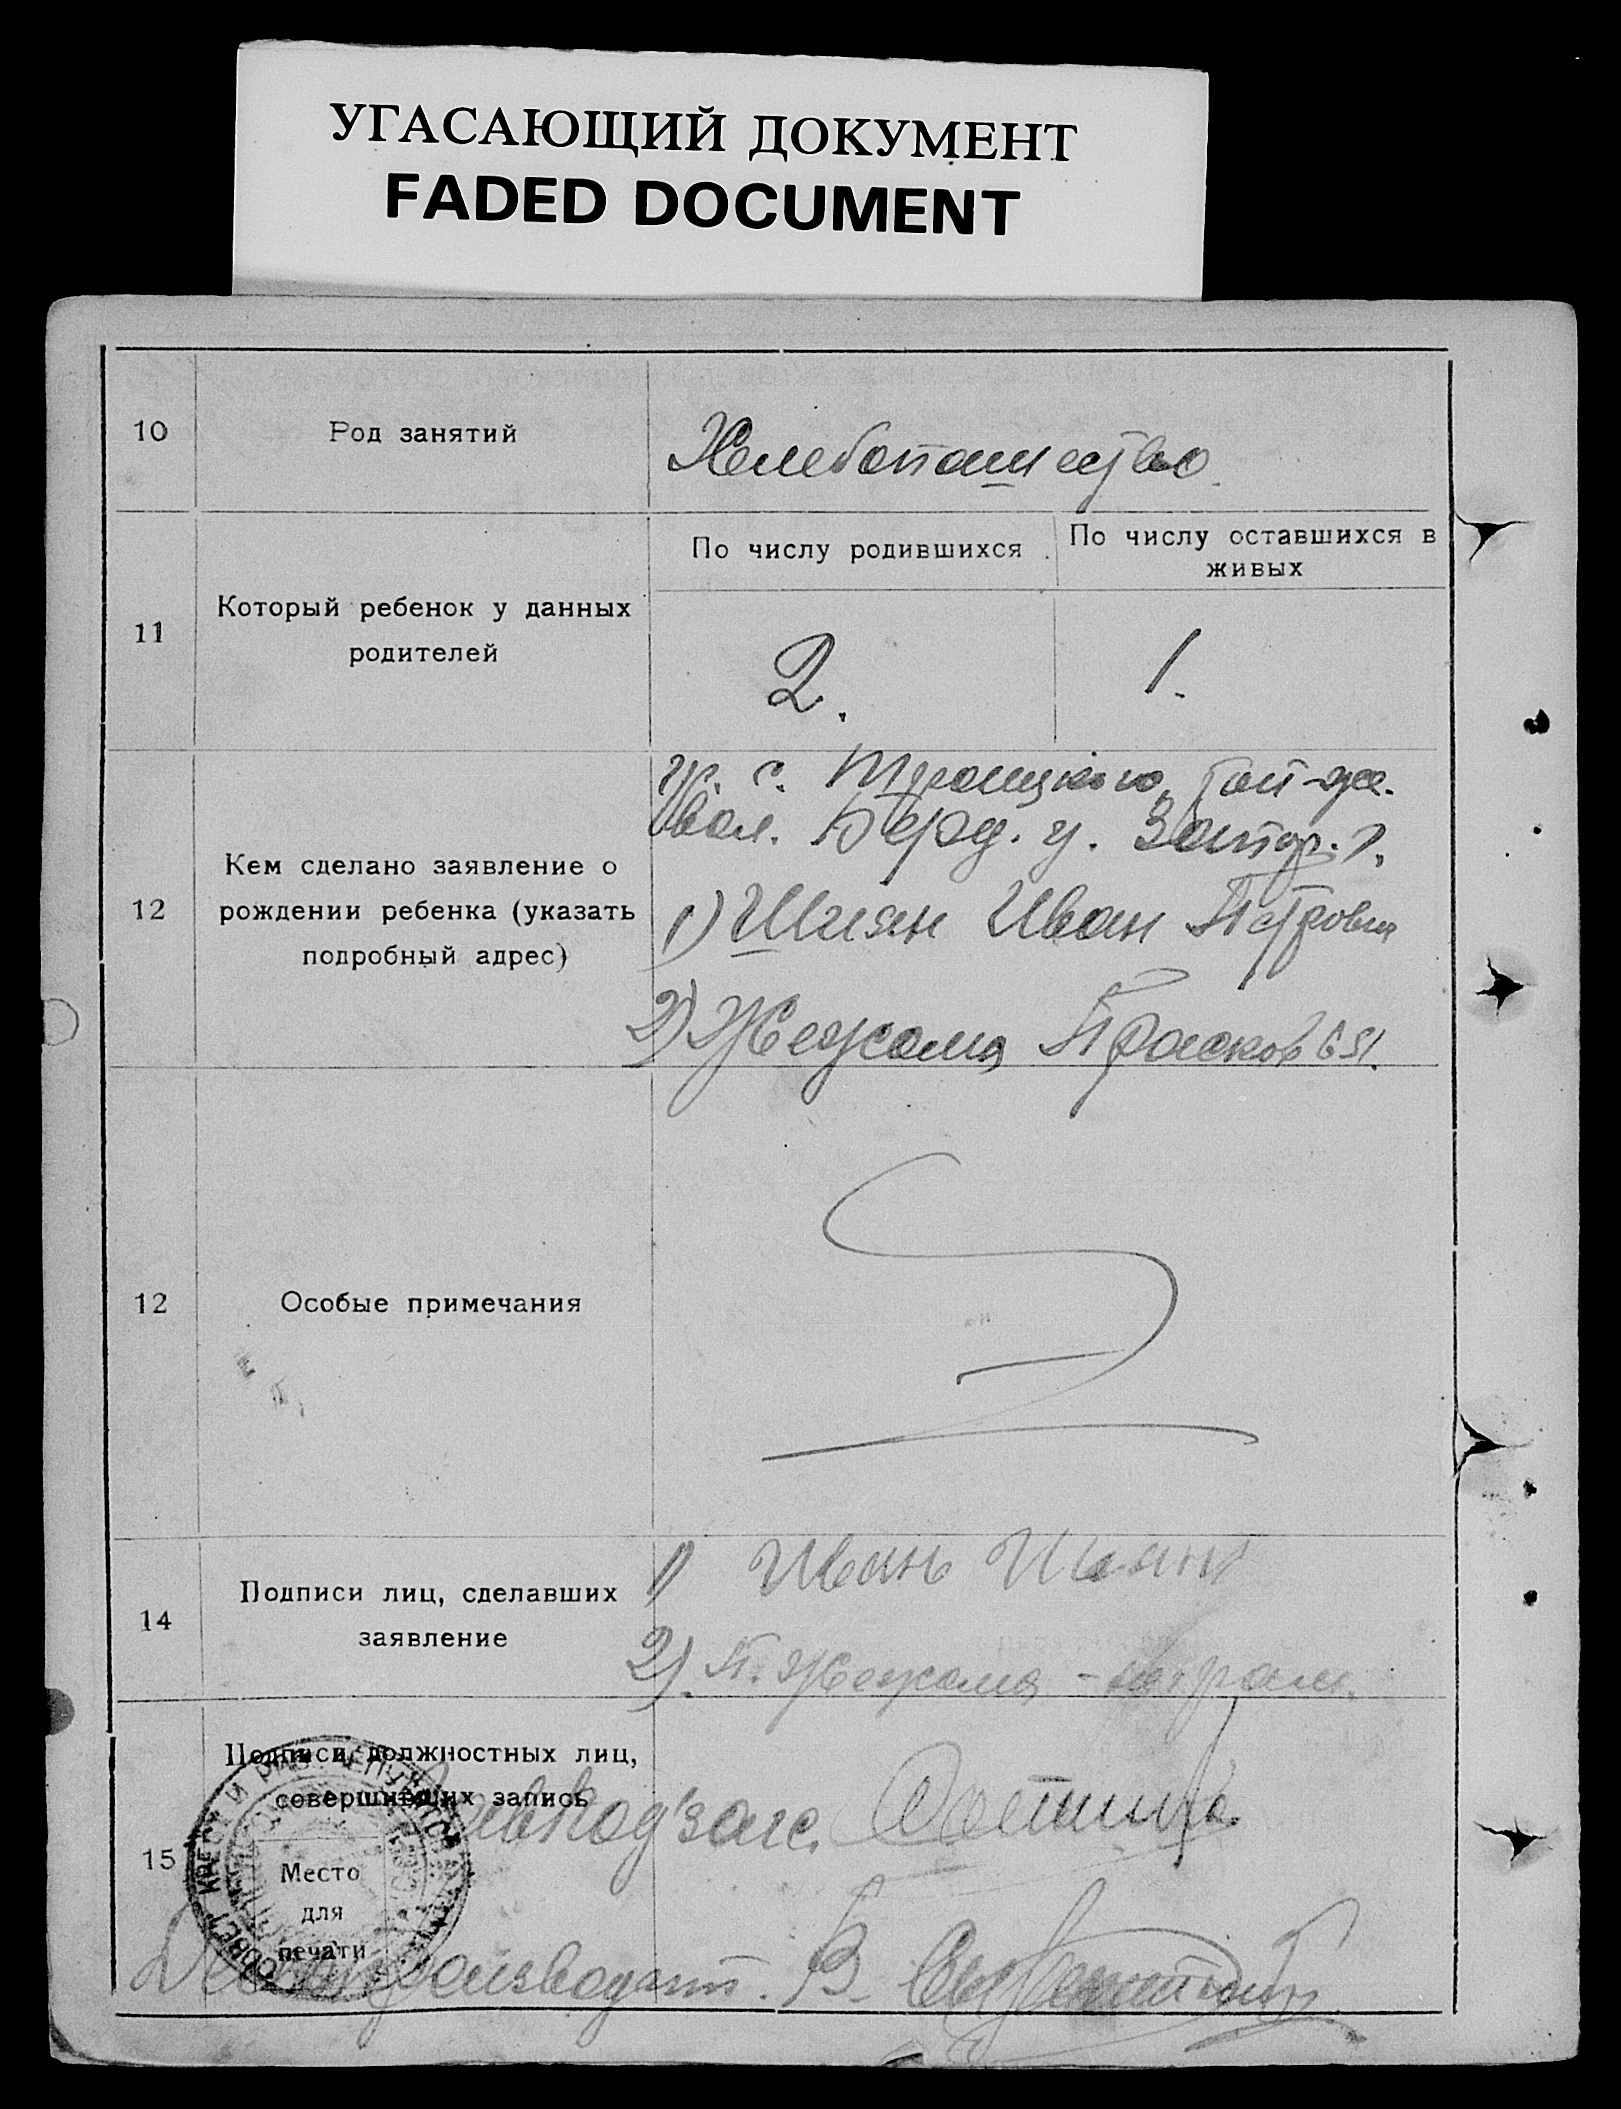 УГАСАЮЩИЙ ДОКУМЕНТ
FADED DOCUMENT
10
Род занятий
Хлебопашество.
11
Который ребенок у данных
родителей
По числу родившихся
По числу оставшихся в
живых
2.
1.
12
Кем сделано заявление о
рождении ребенка (указать
подробный адрес)
Гр. с. Троицкого,
вол. Берд. у. Запор. г.
1) Шиян Иван Петрович
2) Жежома Прасковья.
12
Особые примечания
14
Подписи лиц, сделавших
заявление
1) Иван Шиян
2) П. Жежома -
15
Подписи должностных лиц,
совершивших запись
Место
для
печати
Делопроизводит. В.